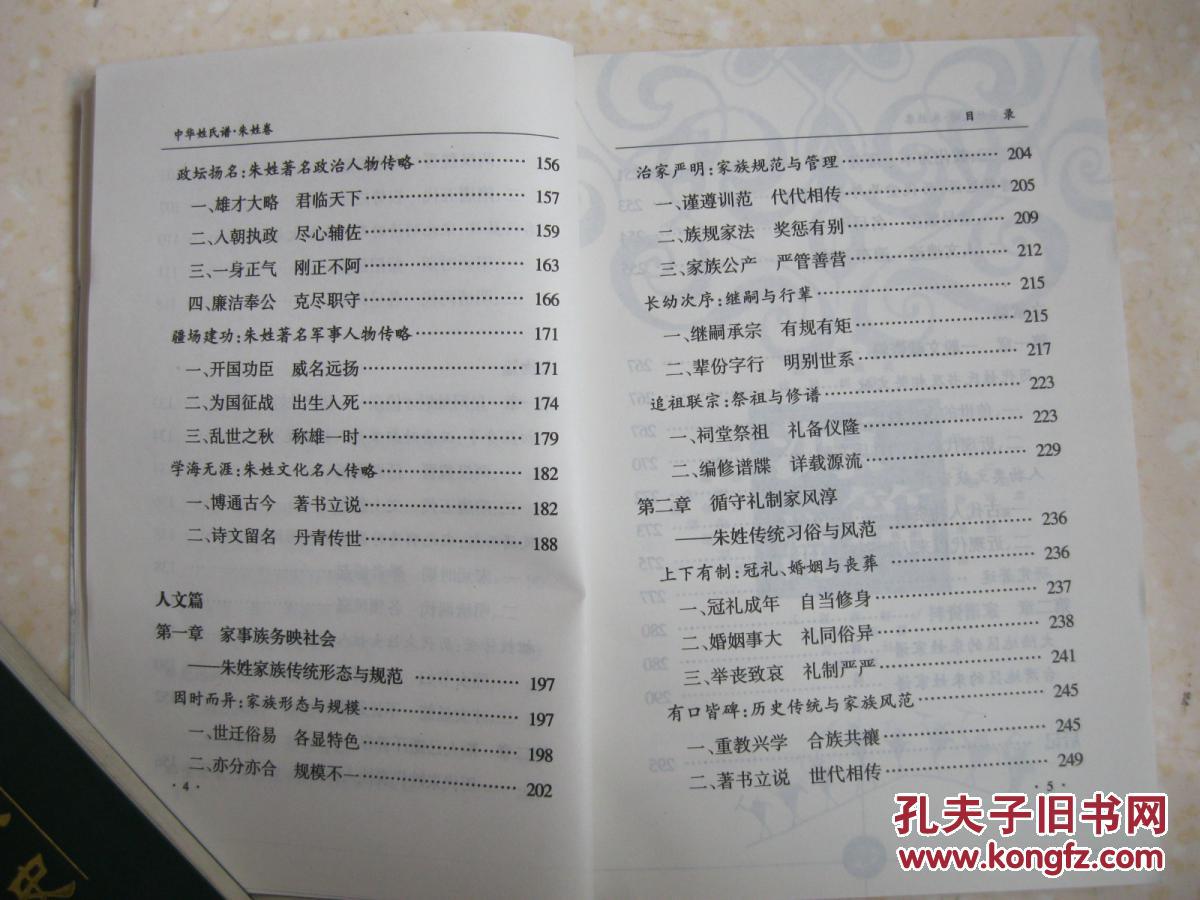 中华姓氏谱·朱姓卷
政坛扬名:朱姓著名政治人物传略……………… 156
一、雄才大略　君临天下……………… 157
二、入朝执政　尽心辅佐……………… 159
三、一身正气　刚正不阿……………… 163
四、廉洁奉公　克尽职守……………… 166
疆场建功:朱姓著名军事人物传略……………… 171
一、开国功臣　威名远扬……………… 171
二、为国征战　出生入死……………… 174
三、乱世之秋　称雄一时……………… 179
学海无涯:朱姓文化名人传略……………… 182
一、博通古今　著书立说……………… 182
二、诗文留名　丹青传世……………… 188
人文篇
第一章　家事族务映社会
——朱姓家族传统形态与规范 ……………… 197
因时而异:家族形态与规模……………… 197
一、世迁俗易　各显特色……………… 198
二、亦分亦合　规模不一……………… 202
· 4 ·
目　录
治家严明:家族规范与管理……………… 204
一、谨遵训范　代代相传……………… 205
二、族规家法　奖惩有别……………… 209
三、家族公产　严管善营……………… 212
长幼次序:继嗣与行辈……………… 215
一、继嗣承宗　有规有矩……………… 215
二、辈份字行　明别世系……………… 217
追祖联宗:祭祖与修谱……………… 223
一、祠堂祭祖　礼备仪隆……………… 223
二、编修谱牒　详载源流……………… 229
第二章　循守礼制家风淳
——朱姓传统习俗与风范 ……………… 236
上下有制:冠礼、婚姻与丧葬 ……………… 236
一、冠礼成年　自当修身……………… 237
二、婚姻事大　礼同俗异……………… 238
三、举丧致哀　礼制严严……………… 241
有口皆碑:历史传统与家族风范……………… 245
一、重教兴学　合族共襄……………… 245
二、著书立说　世代相传……………… 249
· 5 ·
史
孔夫子旧书网
www.kongfz.com